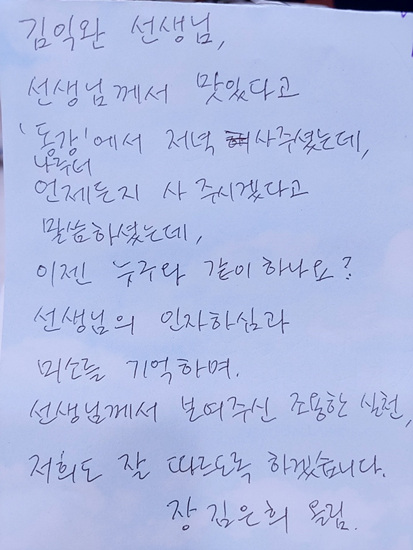 김익완 선생님,
선생님께서 맛있다고
'동강'에서 저녁 사주셨는데,
언제든지 사 주시겠다고
말씀하셨는데,
이젠 누구와 같이 하나요?
선생님의 인자하심과
미소를 기억하며.
선생님께서 보여주신 조용한 실천,
저희도 잘 따르도록 하겠습니다.
장 김은희 올림.